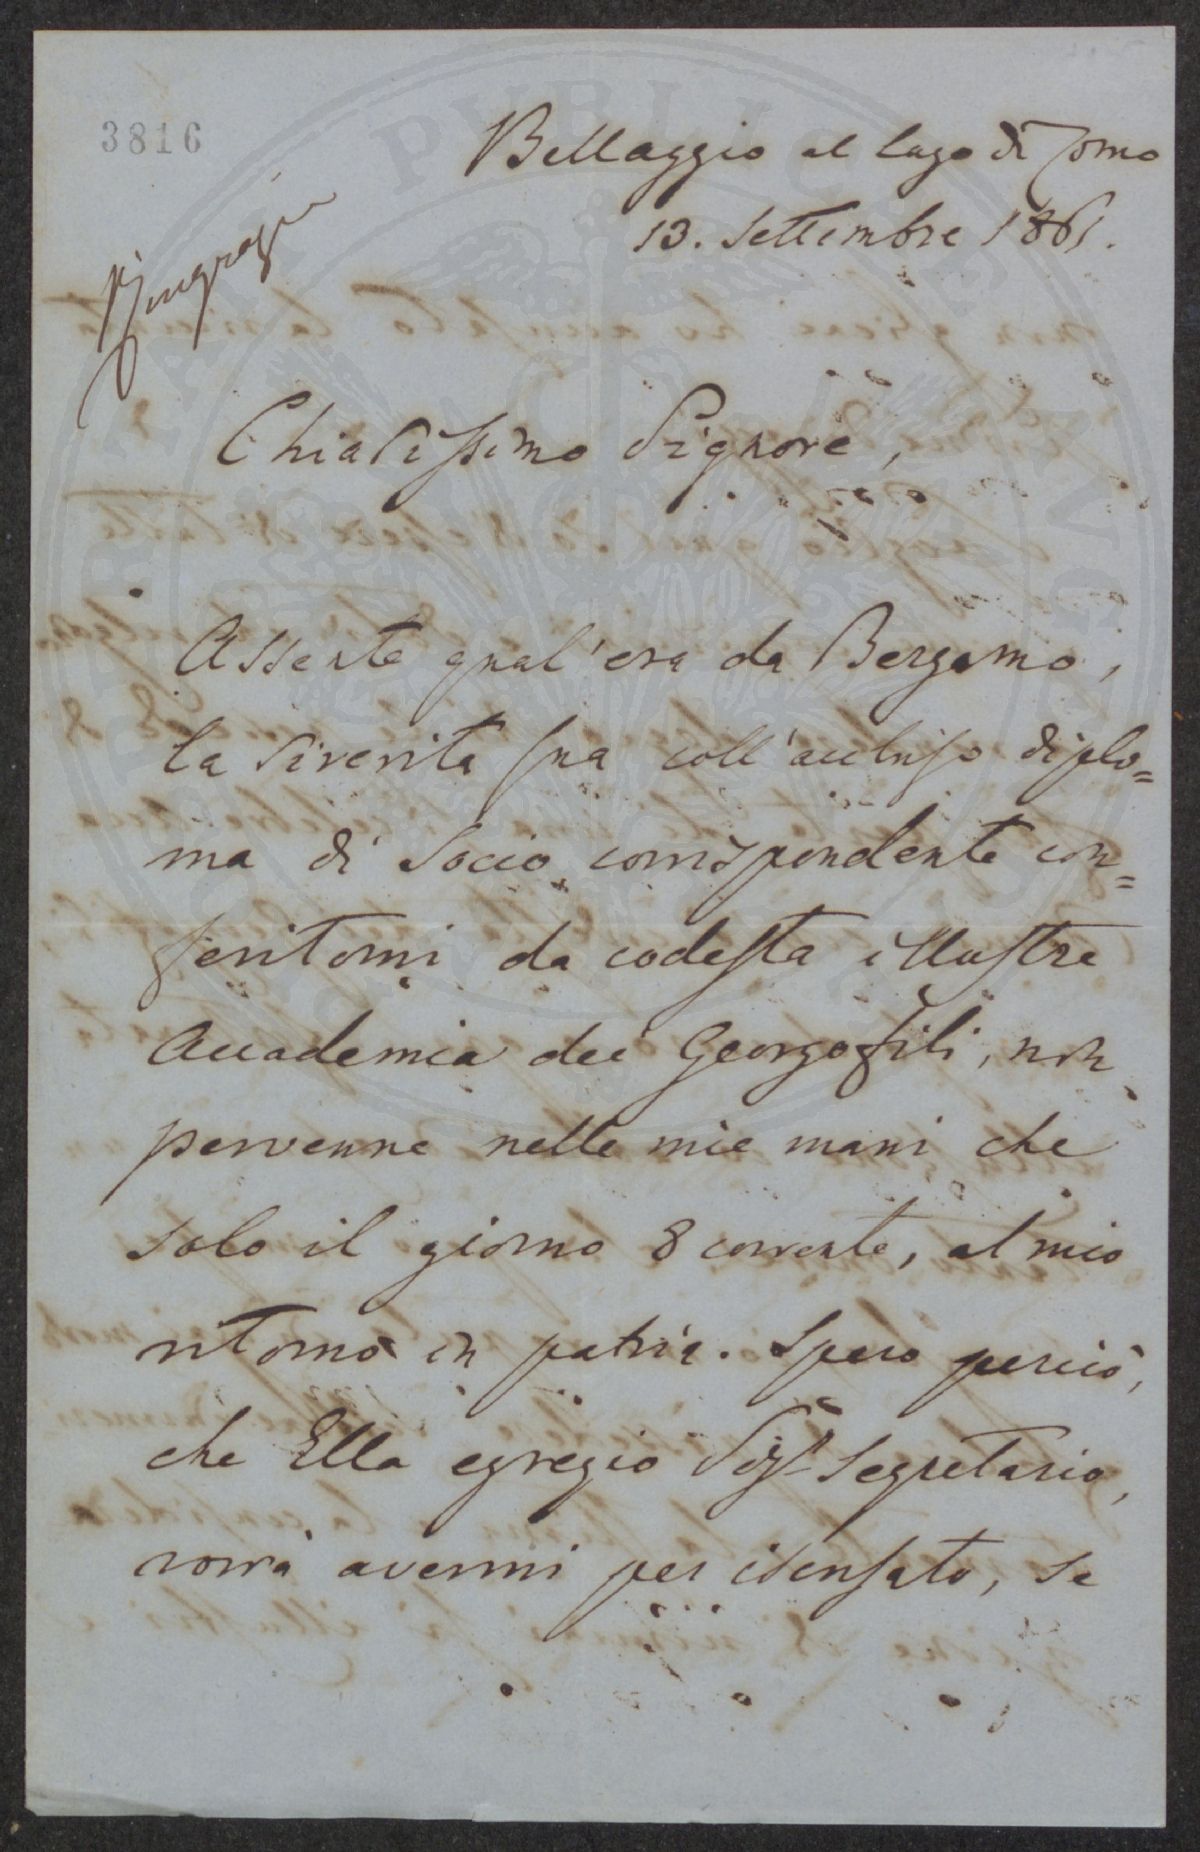 3816
Bellaggio al lago di Como
13. Settembre 1861.
Ringrazi
Chiarissimo Signore,
Assente qual'era da Bergamo,
la riverita sua coll'accluso diplo=
ma di Socio corrispondente con=
feritomi da codesta illustre
Accademia dei Georgofili, non
pervenne nelle mie mani che
solo il giorno 8 corrente, al mio
ritorno in patria. Spero perciò,
che Ella egregio Sigr Segretario,
vorrà avermi per iscusato, se